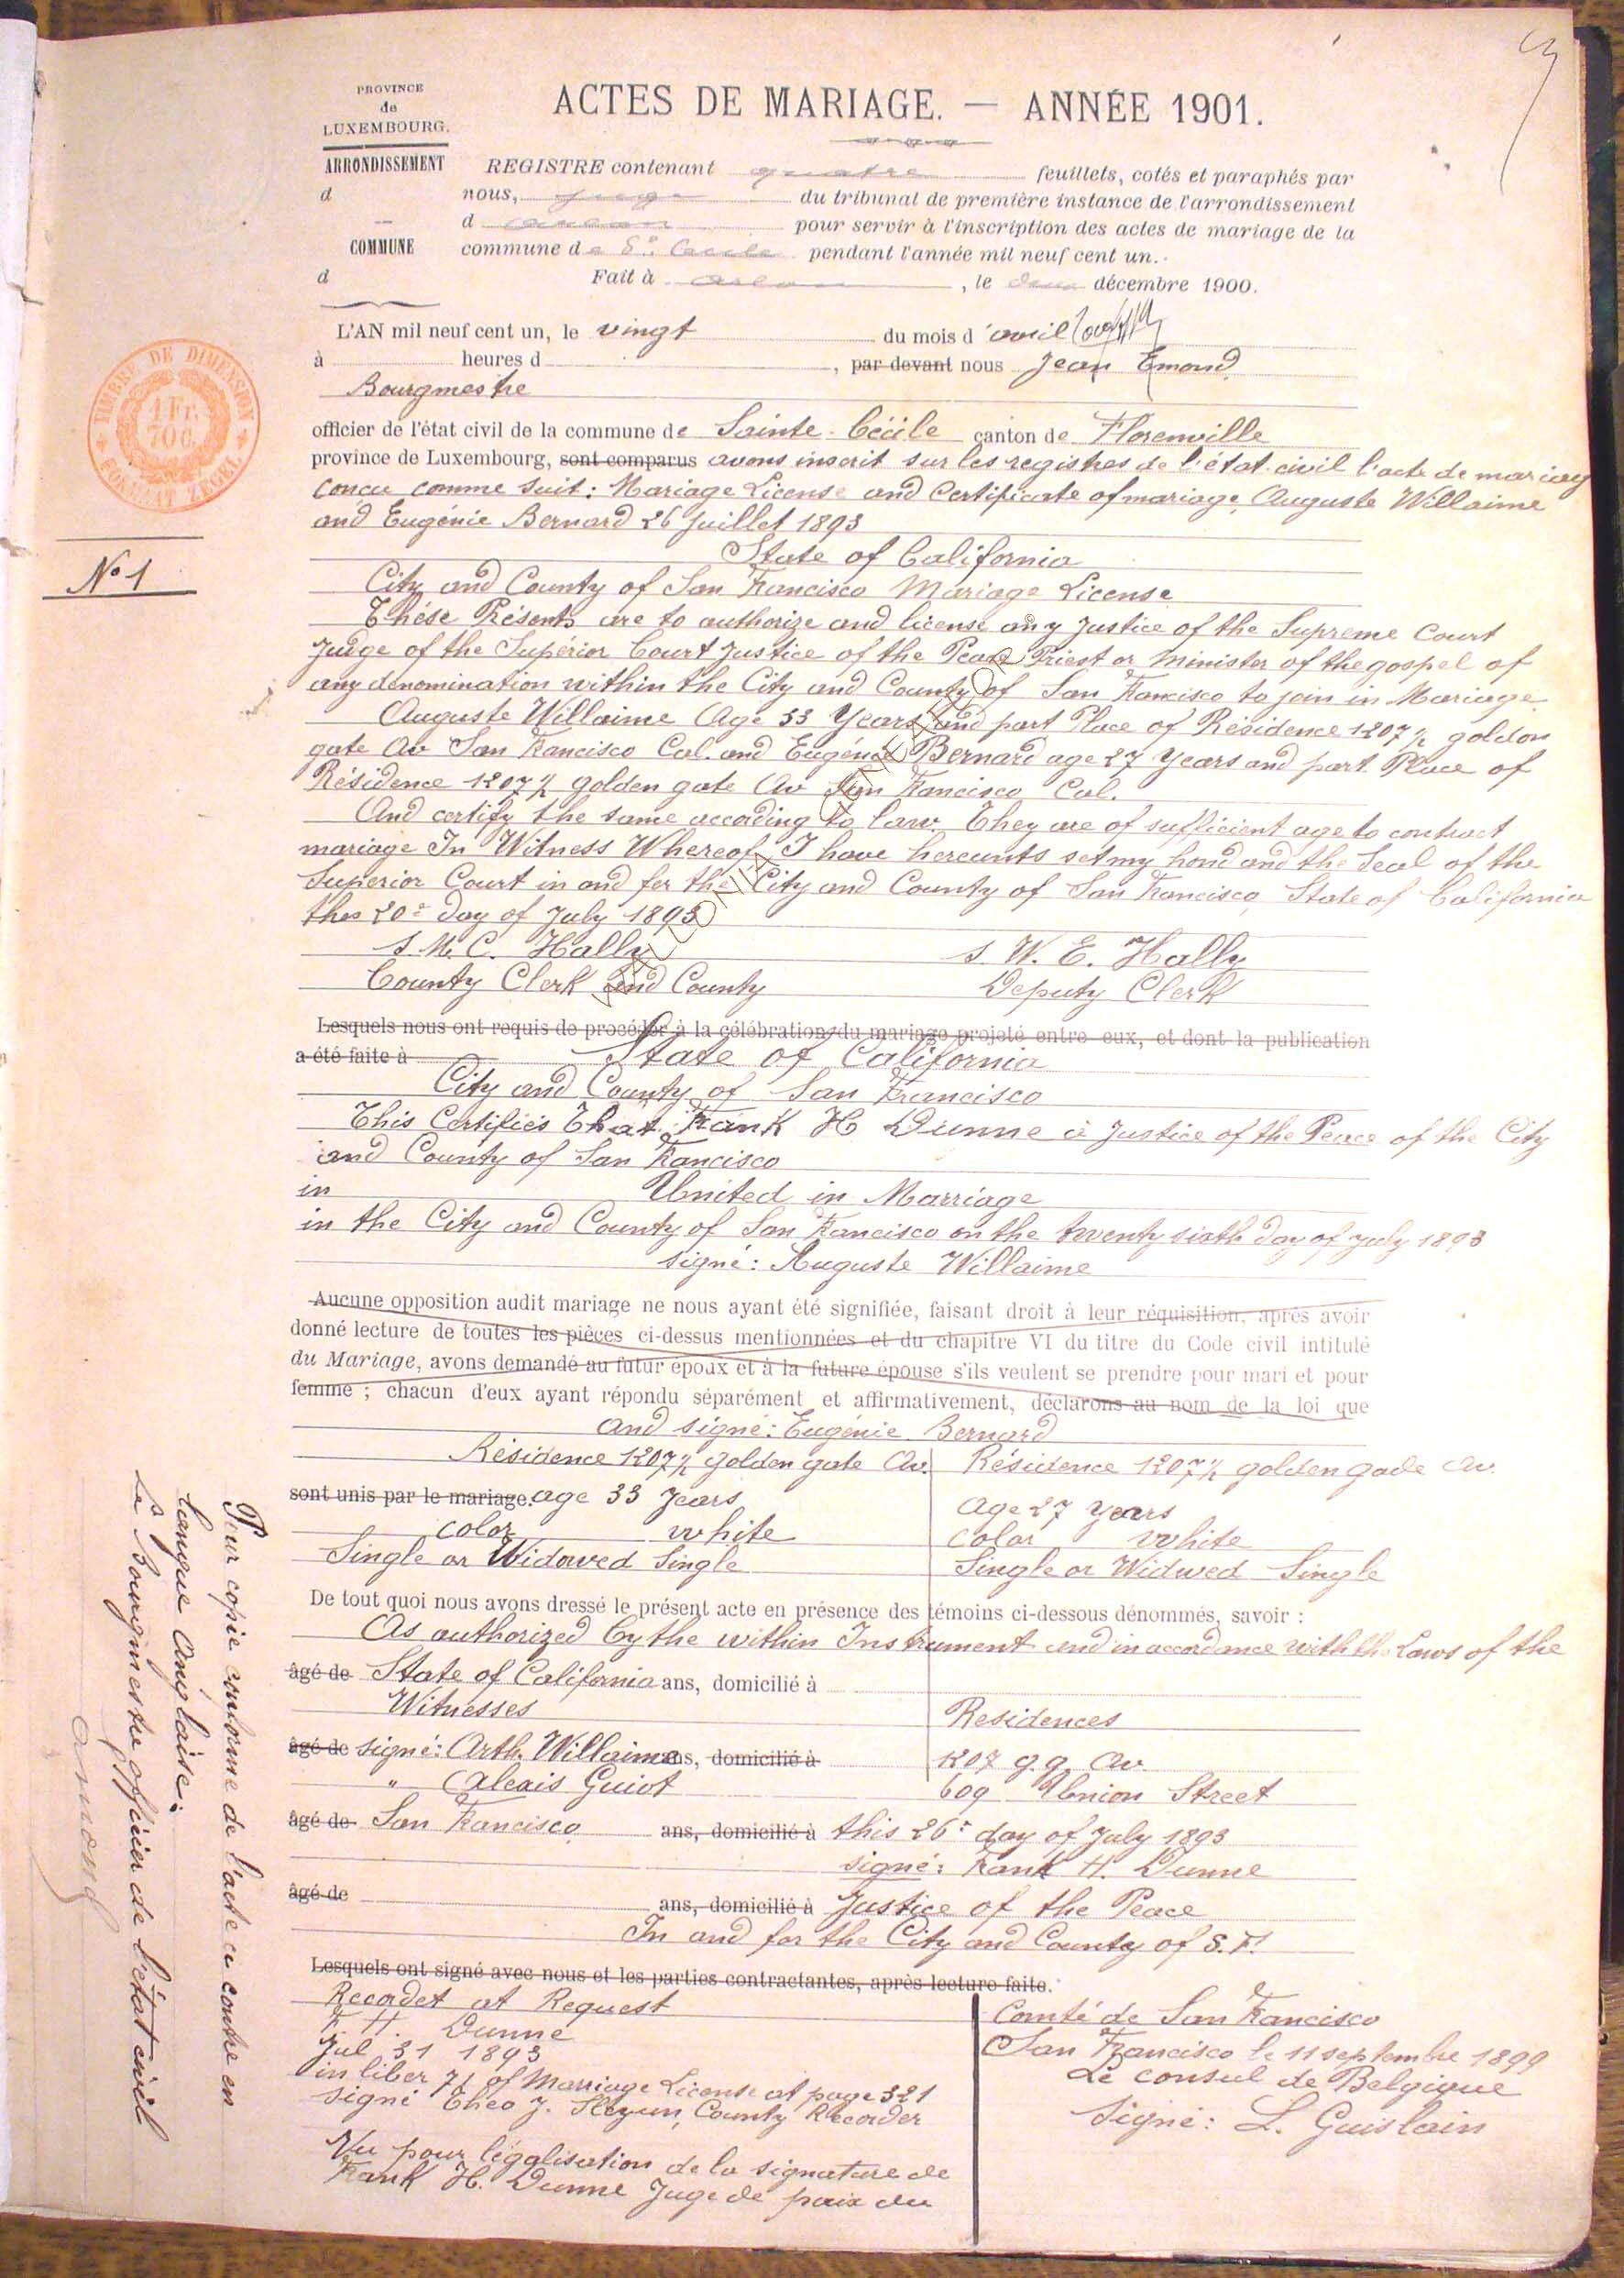 PROVINCE
de
LUXEMBOURG.
ARRONDISSEMENT
d
COMMUNE
d
ACTES DE MARIAGE. — ANNÉE 1901.
REGISTRE contenant quatre feuillets, cotés et paraphés par
nous, juge du tribunal de première instance de l'arrondissement
d'Arlon pour servir à l'inscription des actes de mariage de la
commune de Ste Cécile pendant l'année mil neuf cent un.
Fait à Arlon, le décembre 1900.
TIMBRE DE DIMENSION
1 Fr.
70 C.
N° 1
L'AN mil neuf cent un, le vingt du mois d'avril
à heures d , par devant nous Jean Emond
Bourgmestre
officier de l'état civil de la commune de Sainte-Cécile canton de Florenville
province de Luxembourg, sont comparus avons inscrit sur les registres de l'état civil l'acte de mariag
concu comme suit: Mariage License and Certificate of mariage, Auguste Willaime
and Eugénie Bernard 26 Juillet 1893
State of California
City and County of San Francisco Mariage License
Thése Présents are to authorize and license any Justice of the Supreme Court
Judge of the Supérior Court Justice of the Peace Priest or Minister of the gospel of
any denomination within the City and County of San Francisco to join in Mariage
Auguste Willaime Age 33 Years and part Place of Résidence 1207 ½ golden
gate Av San Francisco Cal. and Eugénie Bernard age 27 Years and part Place of
Résidence 1207 ½ golden gate Av San Francisco Cal.
And certify the same according to law. They are of sufficient age to contract
mariage In Witness Whereof I have hereunto set my hond and the Seal of the
Superior Court in and for the City and County of San Francisco, State of California
this 20e Day of July 1893
s. M. C. Hally s. W. E. Hally
County Clerk and County Deputy Clerk
Lesquels nous ont requis de procéder à la célébration du mariage projeté entre eux, et dont la publication
a été faite à State of California
City and County of San Francisco
This Certifies That Frank H Dunne a Justice of the Peace of the City
and County of San Francisco
in United in Marriage
in the City and County of San Francisco on the twenty sixth day of July 1893
signé: Auguste Willaime
Aucune opposition audit mariage ne nous ayant été signifiée, faisant droit à leur réquisition, après avoir
donné lecture de toutes les pièces ci-dessus mentionnées et du chapitre VI du titre du Code civil intitulé
du Mariage, avons demandé au futur époux et à la future épouse s'ils veulent se prendre pour mari et pour
femme ; chacun d'eux ayant répondu séparément et affirmativement, déclarons au nom de la loi que
and signé: Eugénie Bernard
Résidence 1207 ½ golden gate Av. Résidence 1207 ½ golden gade Av.
sont unis par le mariage. age 33 Years age 27 years
color white color white
Single or Widowed Single Single or Widwed Single
De tout quoi nous avons dressé le présent acte en présence des témoins ci-dessous dénommés, savoir :
As authorized by the within Instrument and in accordance with the Laws of the
âgé de State of California ans, domicilié à
Witnesses Residences
âgé de signé: Arth. Willaime ans, domicilié à 1207 g.g. Av
" Alexis Guiot 609 Union Street
âgé de San Francisco ans, domicilié à this 26e day of July 1893
signé: Frank H. Dunne
âgé de ans, domicilié à Justice of the Peace
In and for the City and County of S. F.
Lesquels ont signé avec nous et les parties contractantes, après lecture faite.
Recordet at Request
F. H. Dunne
Jul 31 1893
in liber 71 of Marriage License at page 321
signé Theo J. County Recorder
Vu pour légalisation de la signature de
Frank H. Dunne Juge de paix du
Comté de San Francisco
San Francisco le 11 septembre 1899
Le consul de Belgique
Signé: L. Guislain
Pour copie conforme de l'acte ci contre en
langue Anglaise:
Le Bourgmestre officier de l'état civil